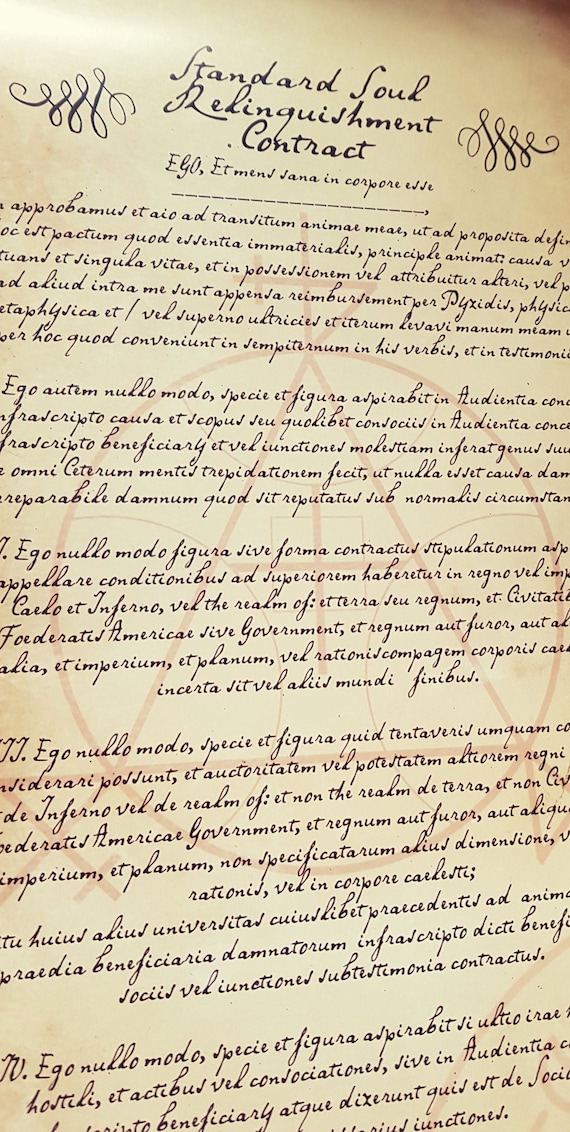 Standard Soul
Relinquishment
Contract
EGO, Et mens sana in corpore esse
approbamus et aio ad transitum animae meae, ut ad proposita defin
oc est pactum quod essentia immaterialis, principle animati causa v
tuans et singula vitae, et in possessionem vel attribuitur alteri, vel p
ad aliud intra me sunt appensa reimbursement per Pyxidis, physic
etaphysica et / vel superno ultricies et iterum levavi manum meam
per hoc quod conveniunt in sempiternum in his verbis, et in testimoni
Ego autem nullo modo, specie et figura aspirabit in Audientia conc
nfrascripto causa et scopus seu quolibet consociis in Audientia conce
frascripto beneficiary et vel iunctiones molestiam inferat genus suu
e omni Ceterum mentis trepidationem fecit, ut nulla esset causa dam
rreparabile damnum quod sit reputatus sub normalis circumstan
I. Ego nullo modo figura sive forma contractus stipulationum asp
appellare conditionibus ad superiorem haberetur in regno vel imp
Caelo et Inferno, vel the realm of: et terra seu regnum, et Civitatie
Foederatis Americae sive Government, et regnum aut furor, aut al
alia, et imperium, et planum, vel rationis compagem corporis cael
incerta sit vel aliis mundi finibus.
III. Ego nullo modo, specie et figura quid tentaveris umquam co
nsiderari possunt, et auctoritatem vel potestatem altiorem regni
de Inferno vel de realm of: et non the realm de terra, et non Civ
oederatis Americae Government, et regnum aut furor, aut aliqu
imperium, et planum, non specificatarum alius dimensione, v
rationis, vel in corpore caelesti;
itu huius alius universitas cuiuslibet praecedentis ad anima
praedia beneficiaria damnatorum infrascripto dicti benefi
sociis vel iunctiones subtestimonia contractus.
IV. Ego nullo modo, specie et figura aspirabit si ultio irae
hostili, et actibus vel consociationes, sive in Audientia c
scripto beneficiary atque dixerunt quis est de Soci
iunctiones.